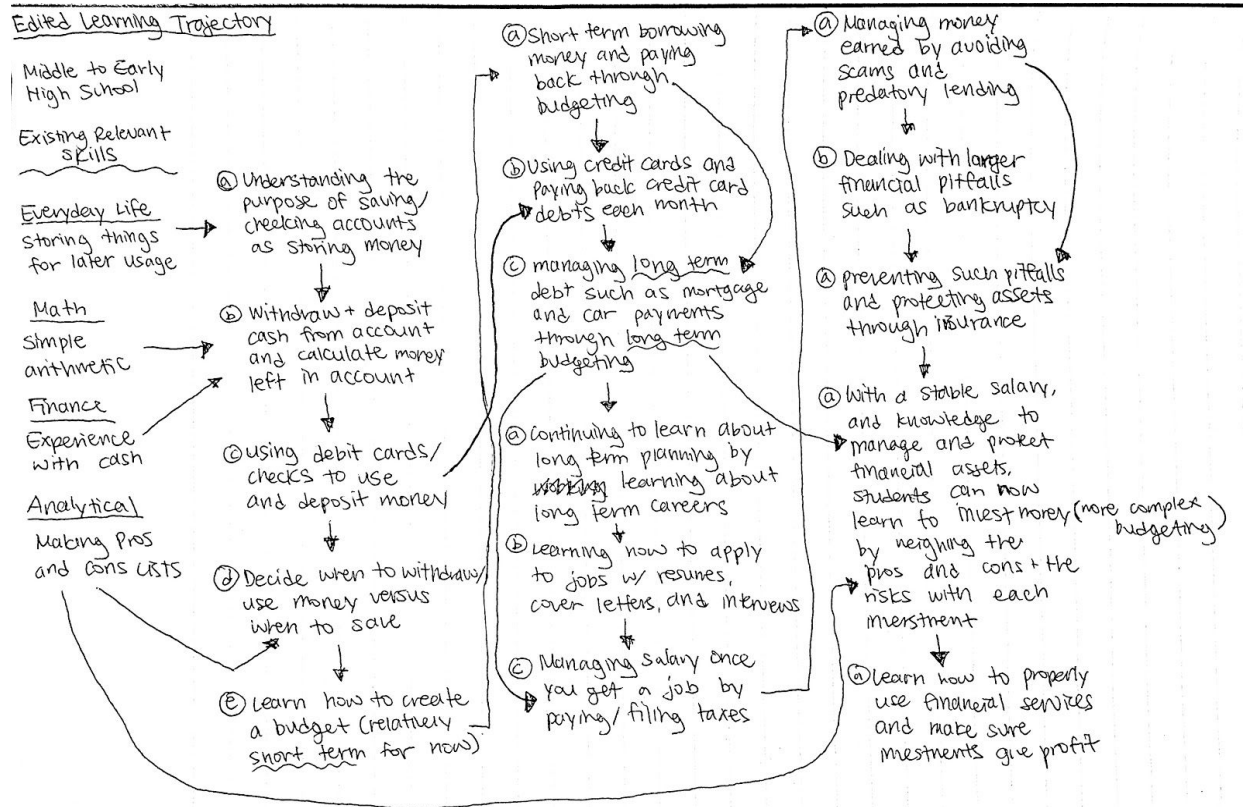 Edited Learning Trajectory
Middle to Early
High School
Existing Relevant
Skills
Everyday Life
Storing things
for later usage
Math
Simple
arithmetic
Finance
Experience
with cash
Analytical
Making Pros
and cons Lists
ⓐ Understanding the
purpose of saving/
checking accounts
as storing money
ⓑ Withdraw + deposit
cash from account
and calculate money
left in account
ⓒ using debit cards/
checks to use
and deposit money
ⓓ Decide when to withdraw/
use money versus
when to save
ⓔ Learn how to create
a budget (relatively
short term for now)
ⓐ Short term borrowing
money and paying
back through
budgeting
ⓑ Using credit cards and
paying back credit card
debts each month
ⓒ managing long term
debt such as mortgage
and car payments
through long term
budgeting
ⓐ Continuing to learn about
long term planning by
learning about
long term careers
ⓑ Learning how to apply
to jobs w/ resumes,
cover letters, and interviews
ⓒ Managing salary once
you get a job by
paying/filing taxes
ⓐ Managing money
earned by avoiding
scams and
predatory lending
ⓑ Dealing with larger
financial pitfalls
such as bankruptcy
ⓐ preventing such pitfalls
and protecting assets
through insurance
ⓐ With a stable salary,
and knowledge to
manage and protect
financial assets,
students can now
learn to invest money (more complex
budgeting)
by weighing the
pros and cons + the
risks with each
investment
ⓐ Learn how to properly
use financial services
and make sure
investments give profit